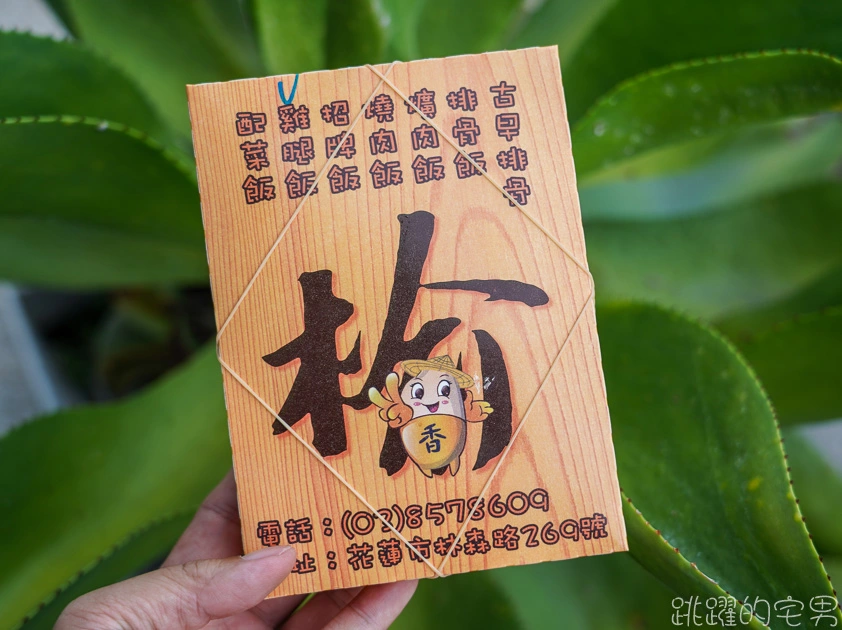 古早排骨
排骨飯
爌肉飯
燒肉飯
招牌飯
雞腿飯
配菜飯
枌
香
電話：(03)8578609
址：花蓮市林森路269號
跳躍的宅男